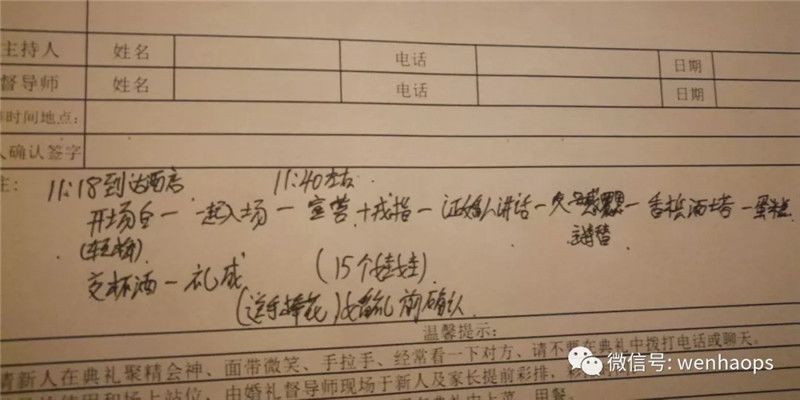 主持人 姓名 电话 日期
督导师 姓名 电话 日期
时间地点:
人确认签字
注: 11:18到达酒店 11:40左右
开场白一一起入场一宣誓+戒指一证婚人讲话一父母 一香槟酒塔一蛋糕
交杯酒一礼成 (15个娃娃)
(送手捧花)婚礼前确认
温馨提示:
请新人在典礼聚精会神、面带微笑、手拉手、经常看一下对方、请不要在典礼中拨打电话或聊天。
使用和场上站位,由婚礼督导师现场于新人及家长提前彩排,
微信号: wenhaops